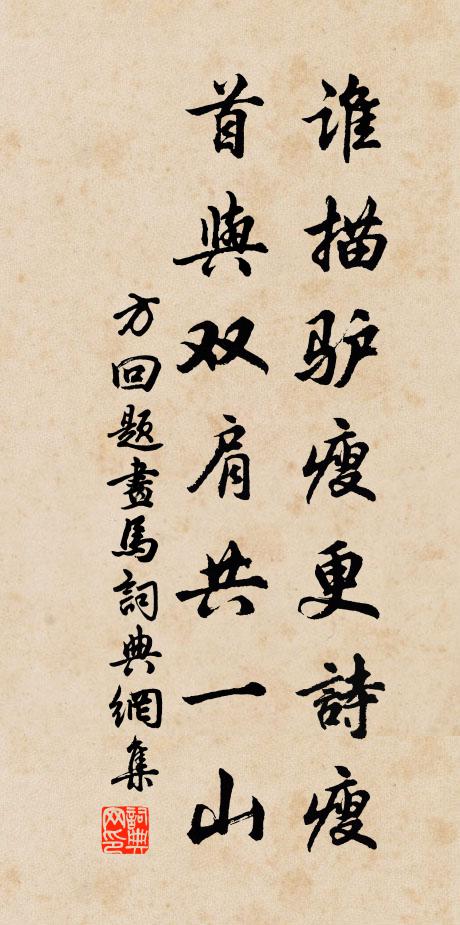 谁描驴瘦更詩瘦
首與双肩共一山
方回题畫馬詞典網集
詞典网印